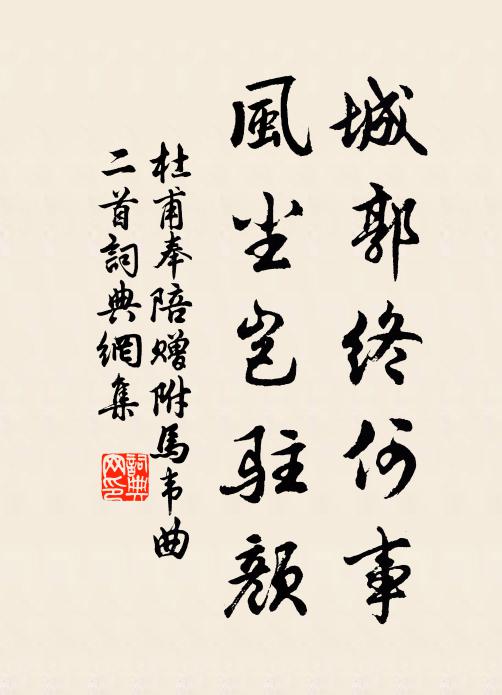 城郭終何事
風尘岂駐顏
杜甫奉陪赠附馬韦曲
二首詞典網集
詞典
网印